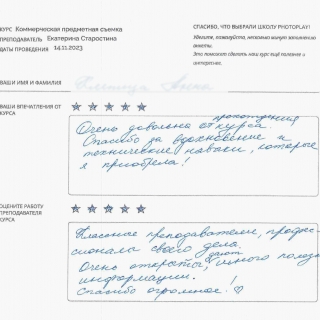 КУРС Коммерческая предметная съемка
ПРЕПОДАВАТЕЛЬ Екатерина Старостина
ДАТЫ ПРОВЕДЕНИЯ 14.11.2023
СПАСИБО, ЧТО ВЫБРАЛИ ШКОЛУ PHOTOPLAY!
Уделите, пожалуйста, несколько минут заполнению
анкеты.
Это поможет сделать наш курс ещё полезнее и
интереснее.
ВАШИ ИМЯ И ФАМИЛИЯ
ВАШИ ВПЕЧАТЛЕНИЯ ОТ
КУРСА
прохождения
Очень довольна от курса.
Спасибо за вдохновение и
технические навыки, которые
я приобрела!
ОЦЕНИТЕ РАБОТУ
ПРЕПОДАВАТЕЛЯ
КУРСА
Классные преподаватели, профес-
сионалы своего дела.
дают
Очень открыты, много полезн
информации.
Спасибо огромное!